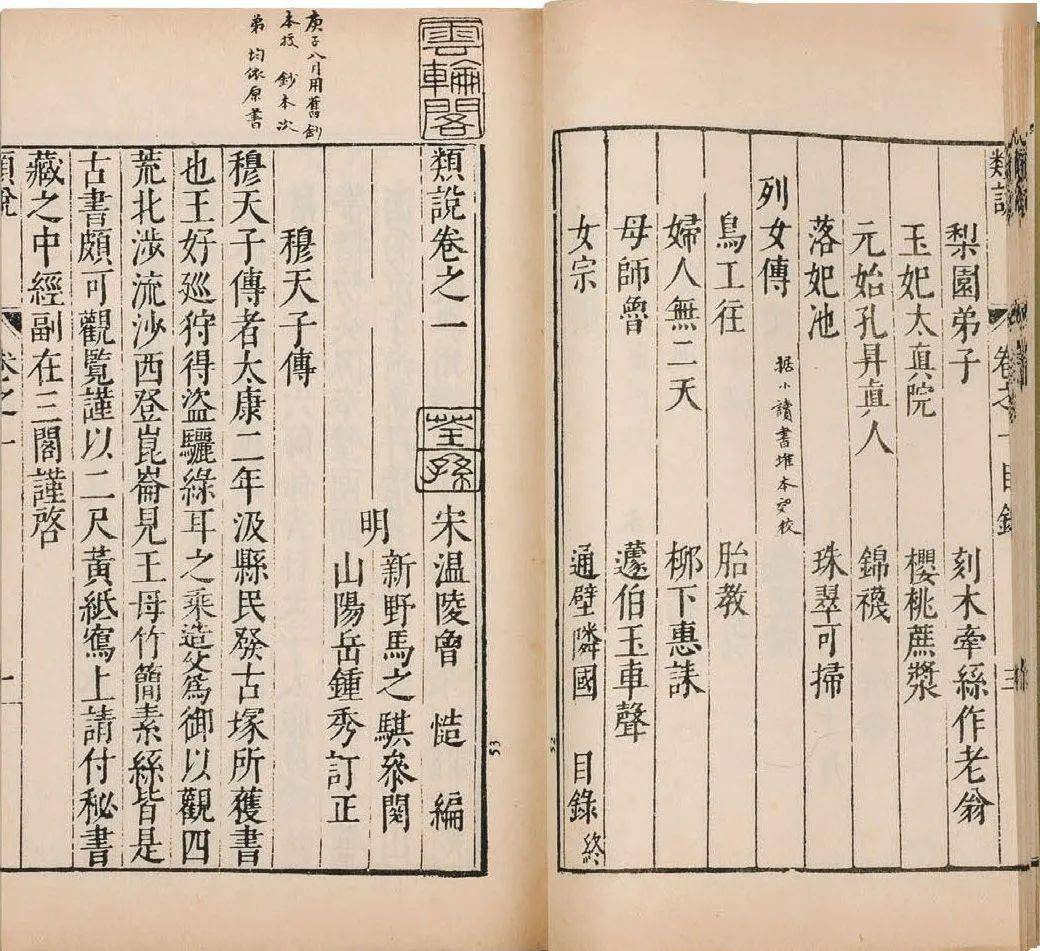 類說 卷之一目錄 三
梨園弟子 刻木牽絲作老翁
玉妃太眞院 櫻桃蔗漿
元始孔昇眞人 錦襪
落妃池 珠翠可掃
列女傳
据小讀書堆本校
鳥工往 胎教
婦人無二天 柳下惠誄
母師魯 蘧伯玉車聲
女宗 通壁隣國 目錄終
52
53
雲輪閣
庚子八月用舊鈔
本校 鈔本次
弟均依原書
類說卷之一
荃孫
宋温陵曾 慥 編
明 新野馬之騏叅閱
山陽岳鍾秀訂正
穆天子傳
穆天子傳者太康二年汲縣民發古塚所獲書
也王好廵狩得盜驪綠耳之乘造父爲御以觀四
荒北涉流沙西登崑崙見王母竹簡素絲皆是
古書頗可觀覽謹以二尺黃紙寫上請付秘書
藏之中經副在三閣謹啓
類說 卷之一 一